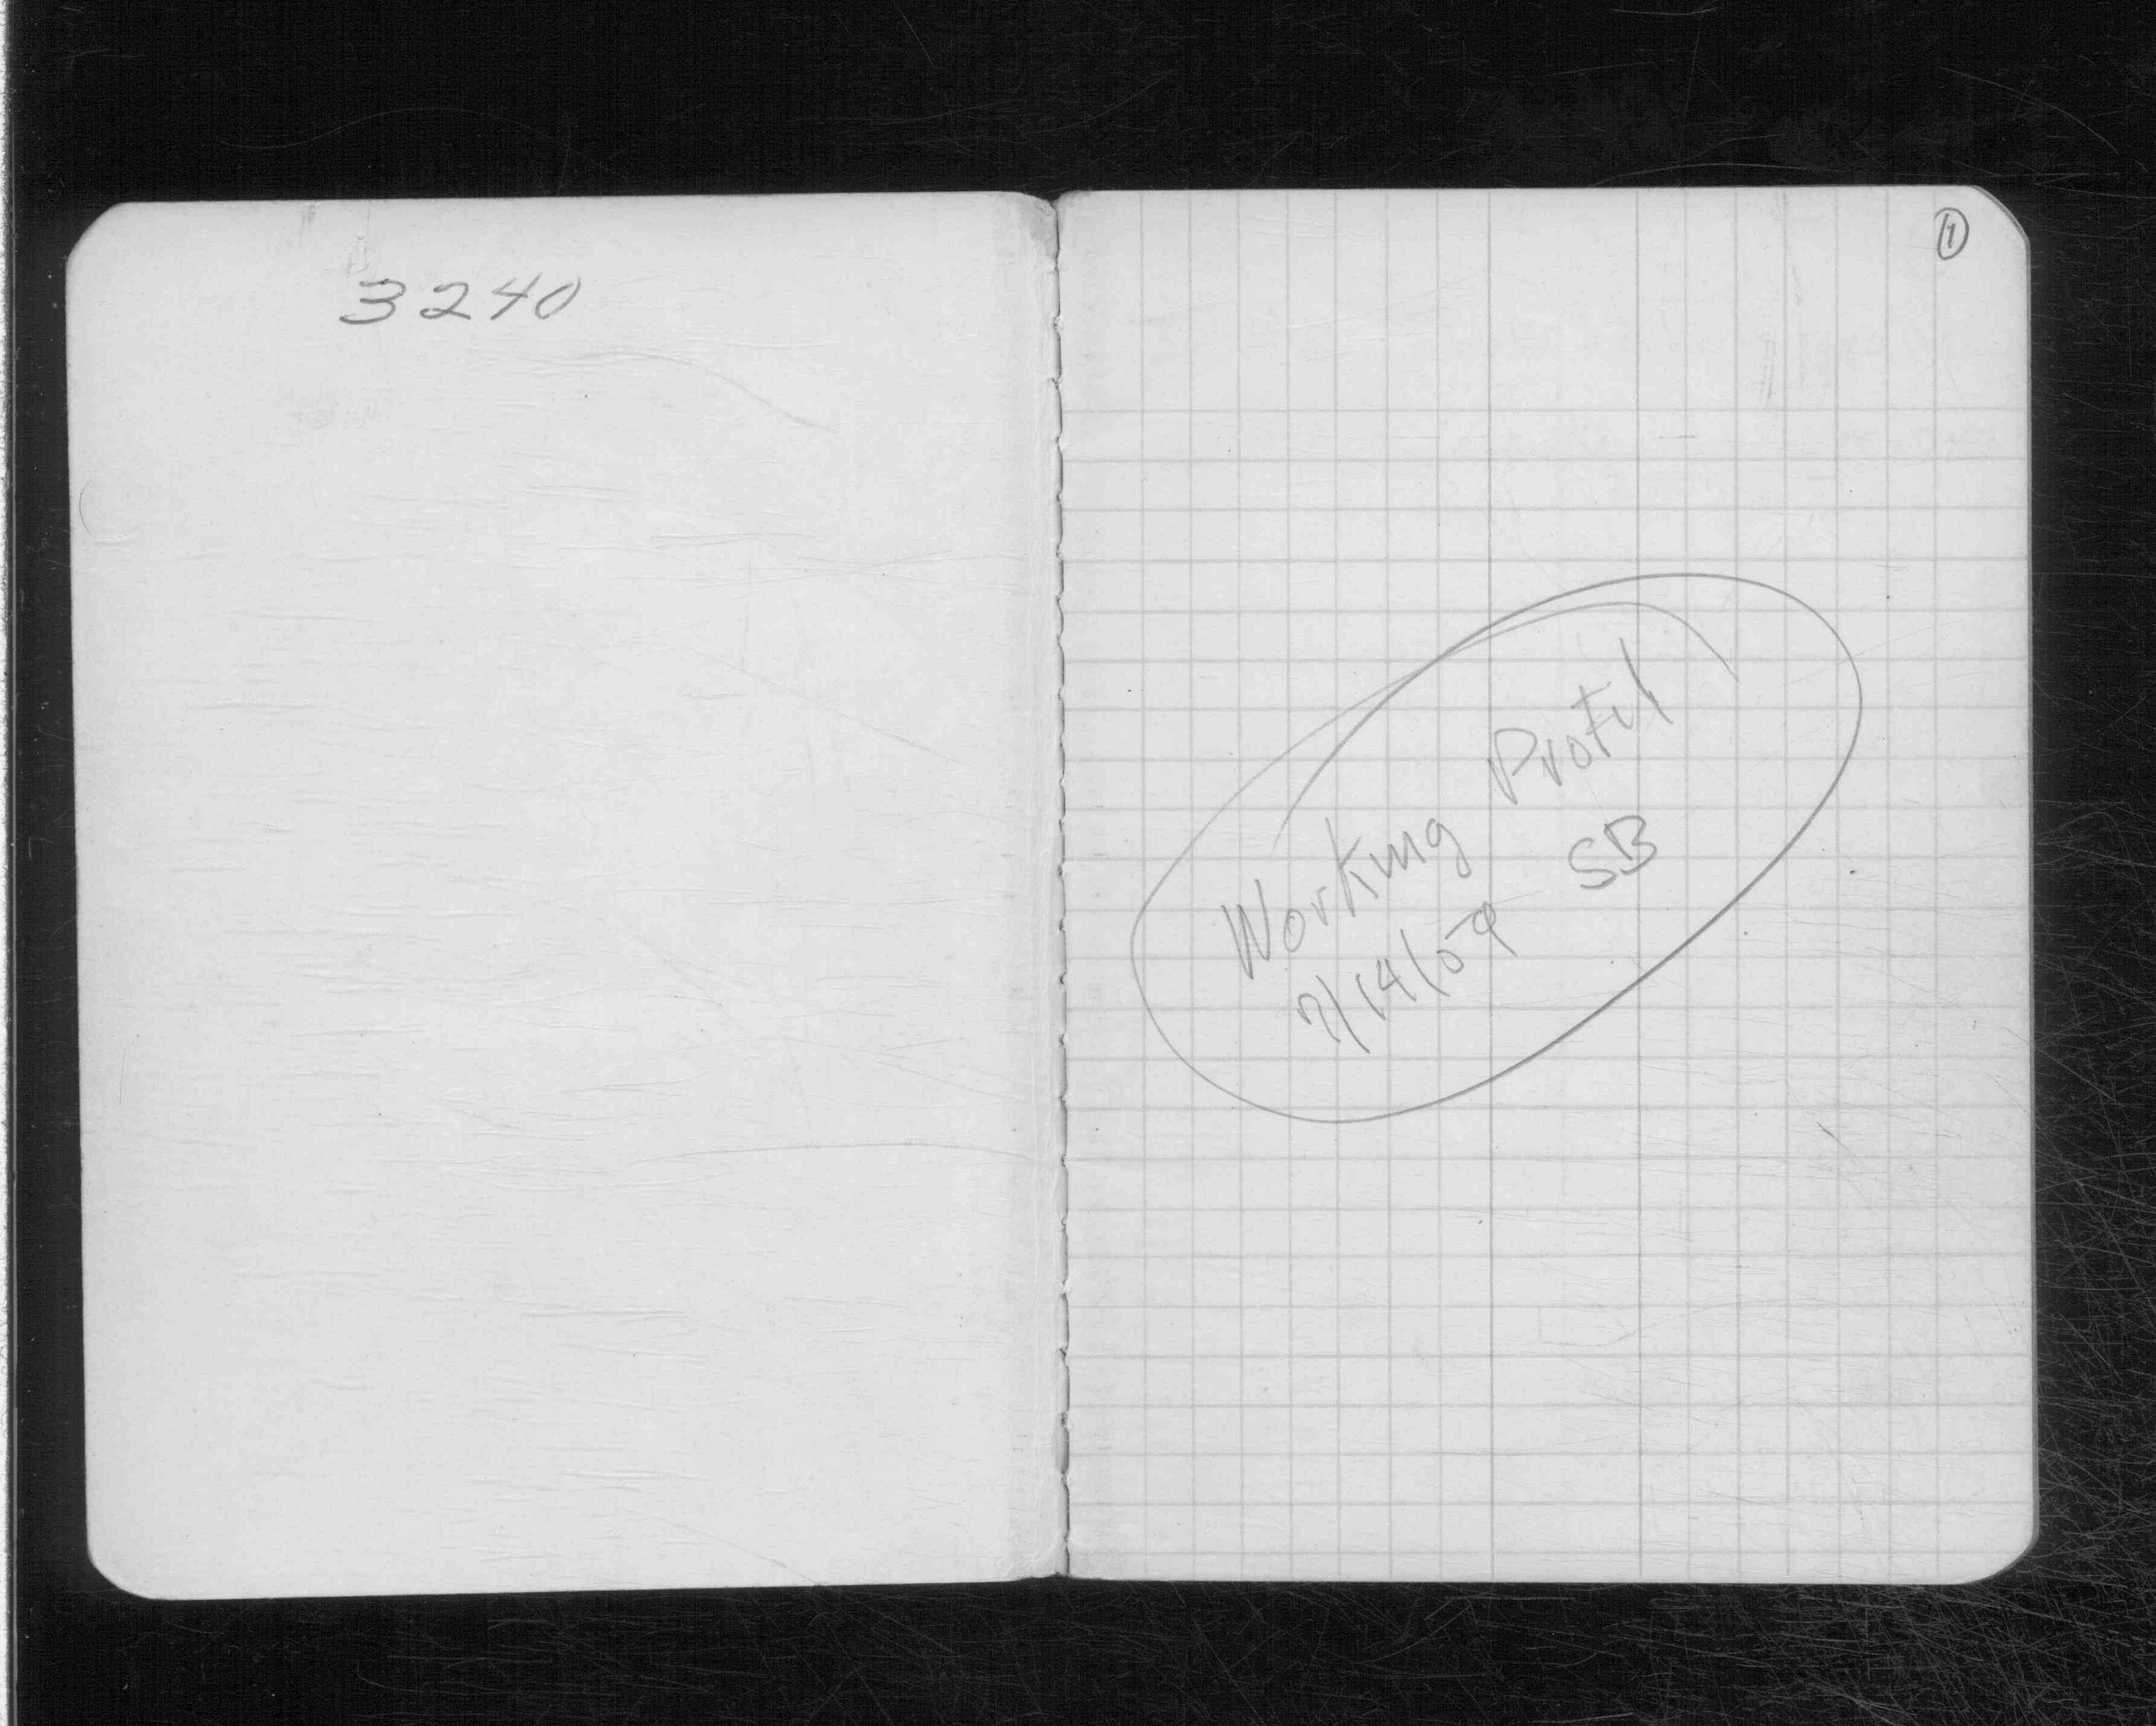 3240
1
Working Profil
7/14/59 SB